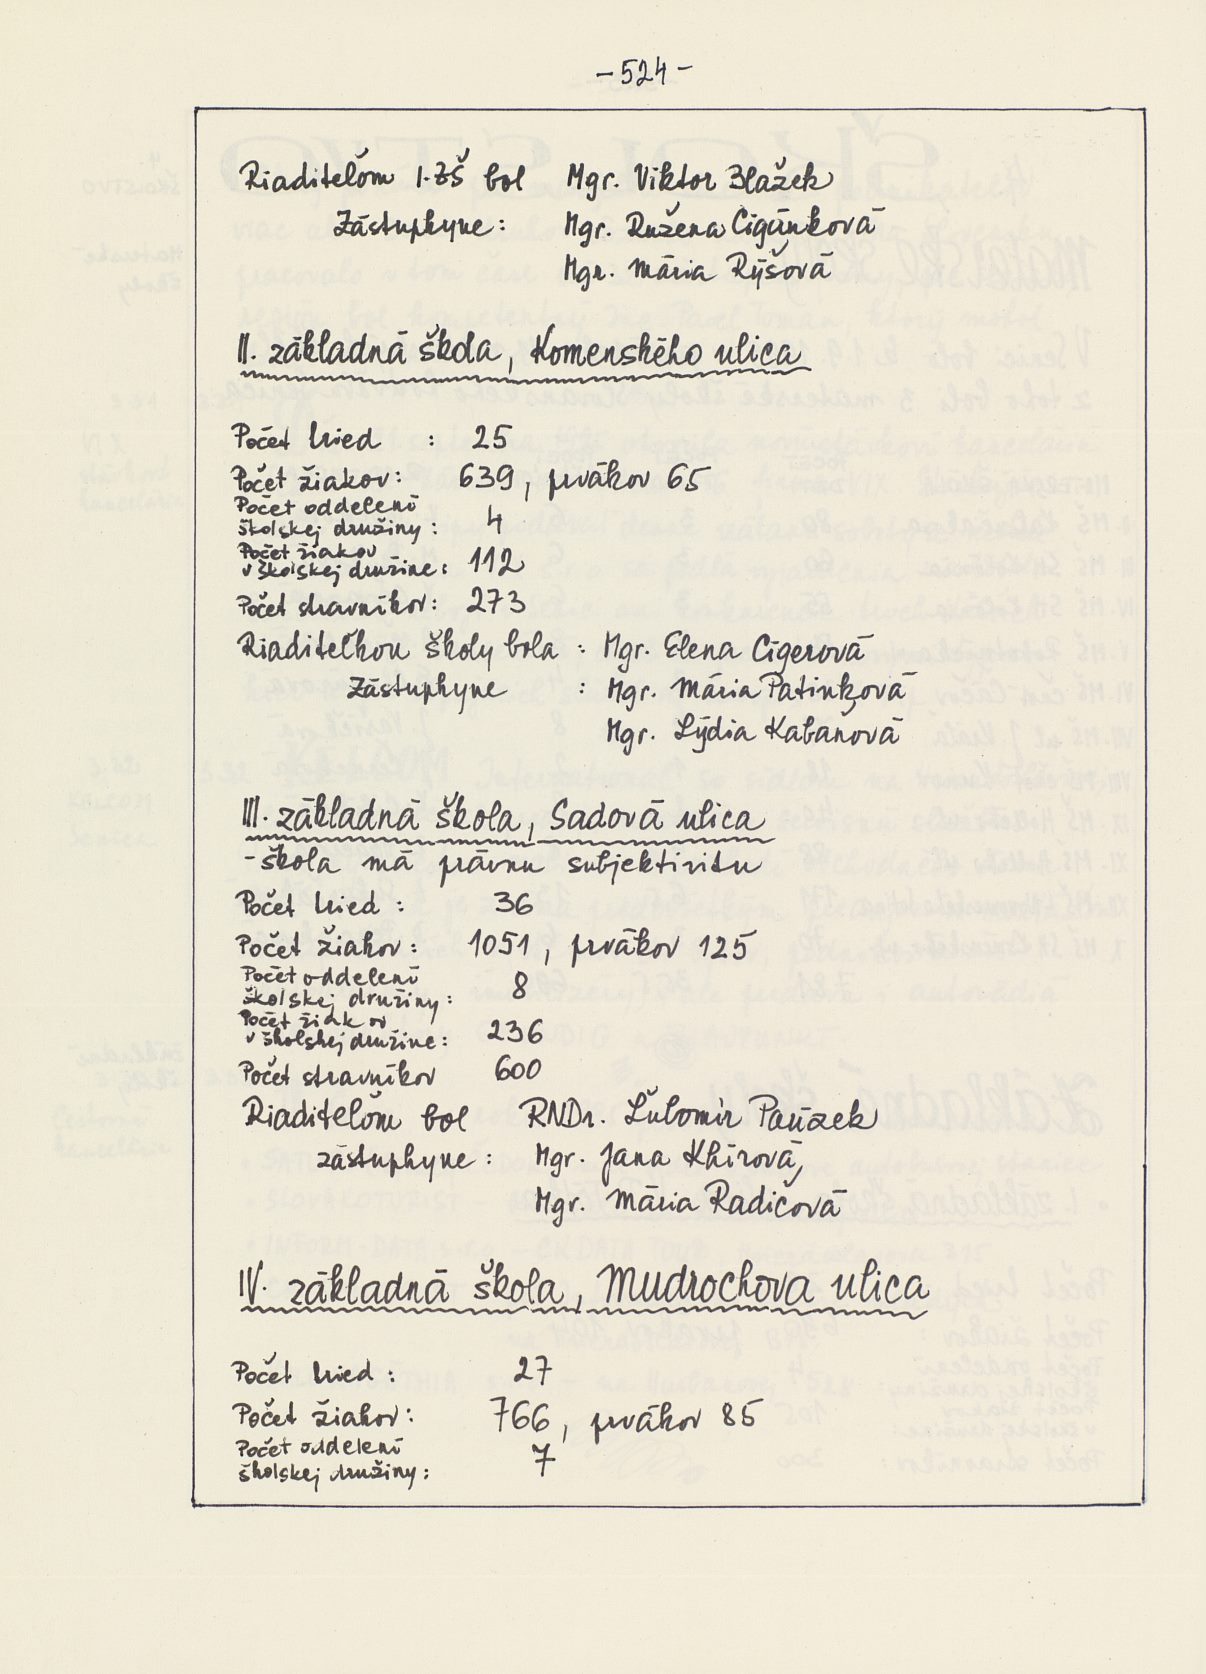 - 524 -
Riaditeľom I. ZŠ bol Mgr. Viktor Blažek
Zástupkyne: Mgr. Ružena Cigánková
Mgr. Mária Rýšová
II. základná škola, Komenského ulica
Počet tried : 25
Počet žiakov: 639, prvákov 65
Počet oddelení
školskej družiny: 4
Počet žiakov
v školskej družine: 112
Počet stravníkov: 273
Riaditeľkou školy bola : Mgr. Elena Cigerová
Zástupkyne : Mgr. Mária Patinková
Mgr. Lýdia Kabaňová
III. základná škola, Sadová ulica
- škola má právnu subjektivitu
Počet tried : 36
Počet žiakov: 1051, prvákov 125
Počet oddelení
školskej družiny: 8
Počet žiakov
v školskej družine: 236
Počet stravníkov 600
Riaditeľom bol RNDr. Ľubomír Paúzek
zástupkyne: Mgr. Jana Khírová,
Mgr. Mária Radičová
IV. základná škola, Mudrochova ulica
Počet tried : 27
Počet žiakov: 766, prvákov 85
Počet oddelení
školskej družiny: 7